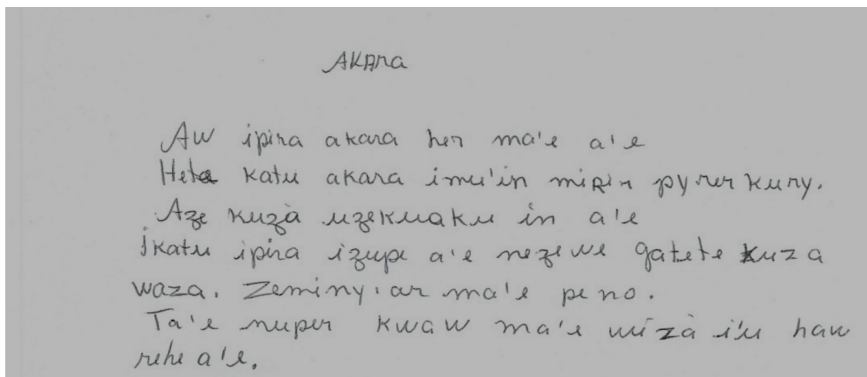 AKARA
Aw ipira akara her ma'e a'e
Heta katu akara imu'in miRir pyrer kury.
Aze kuzà uzekuaku in a'e
ikatu ipira izupe a'e nezewe gatete kuza
waza. Zeminy'ar ma'e pe no.
Ta'e nuper kwaw ma'e wizà i'u haw
rehe a'e.